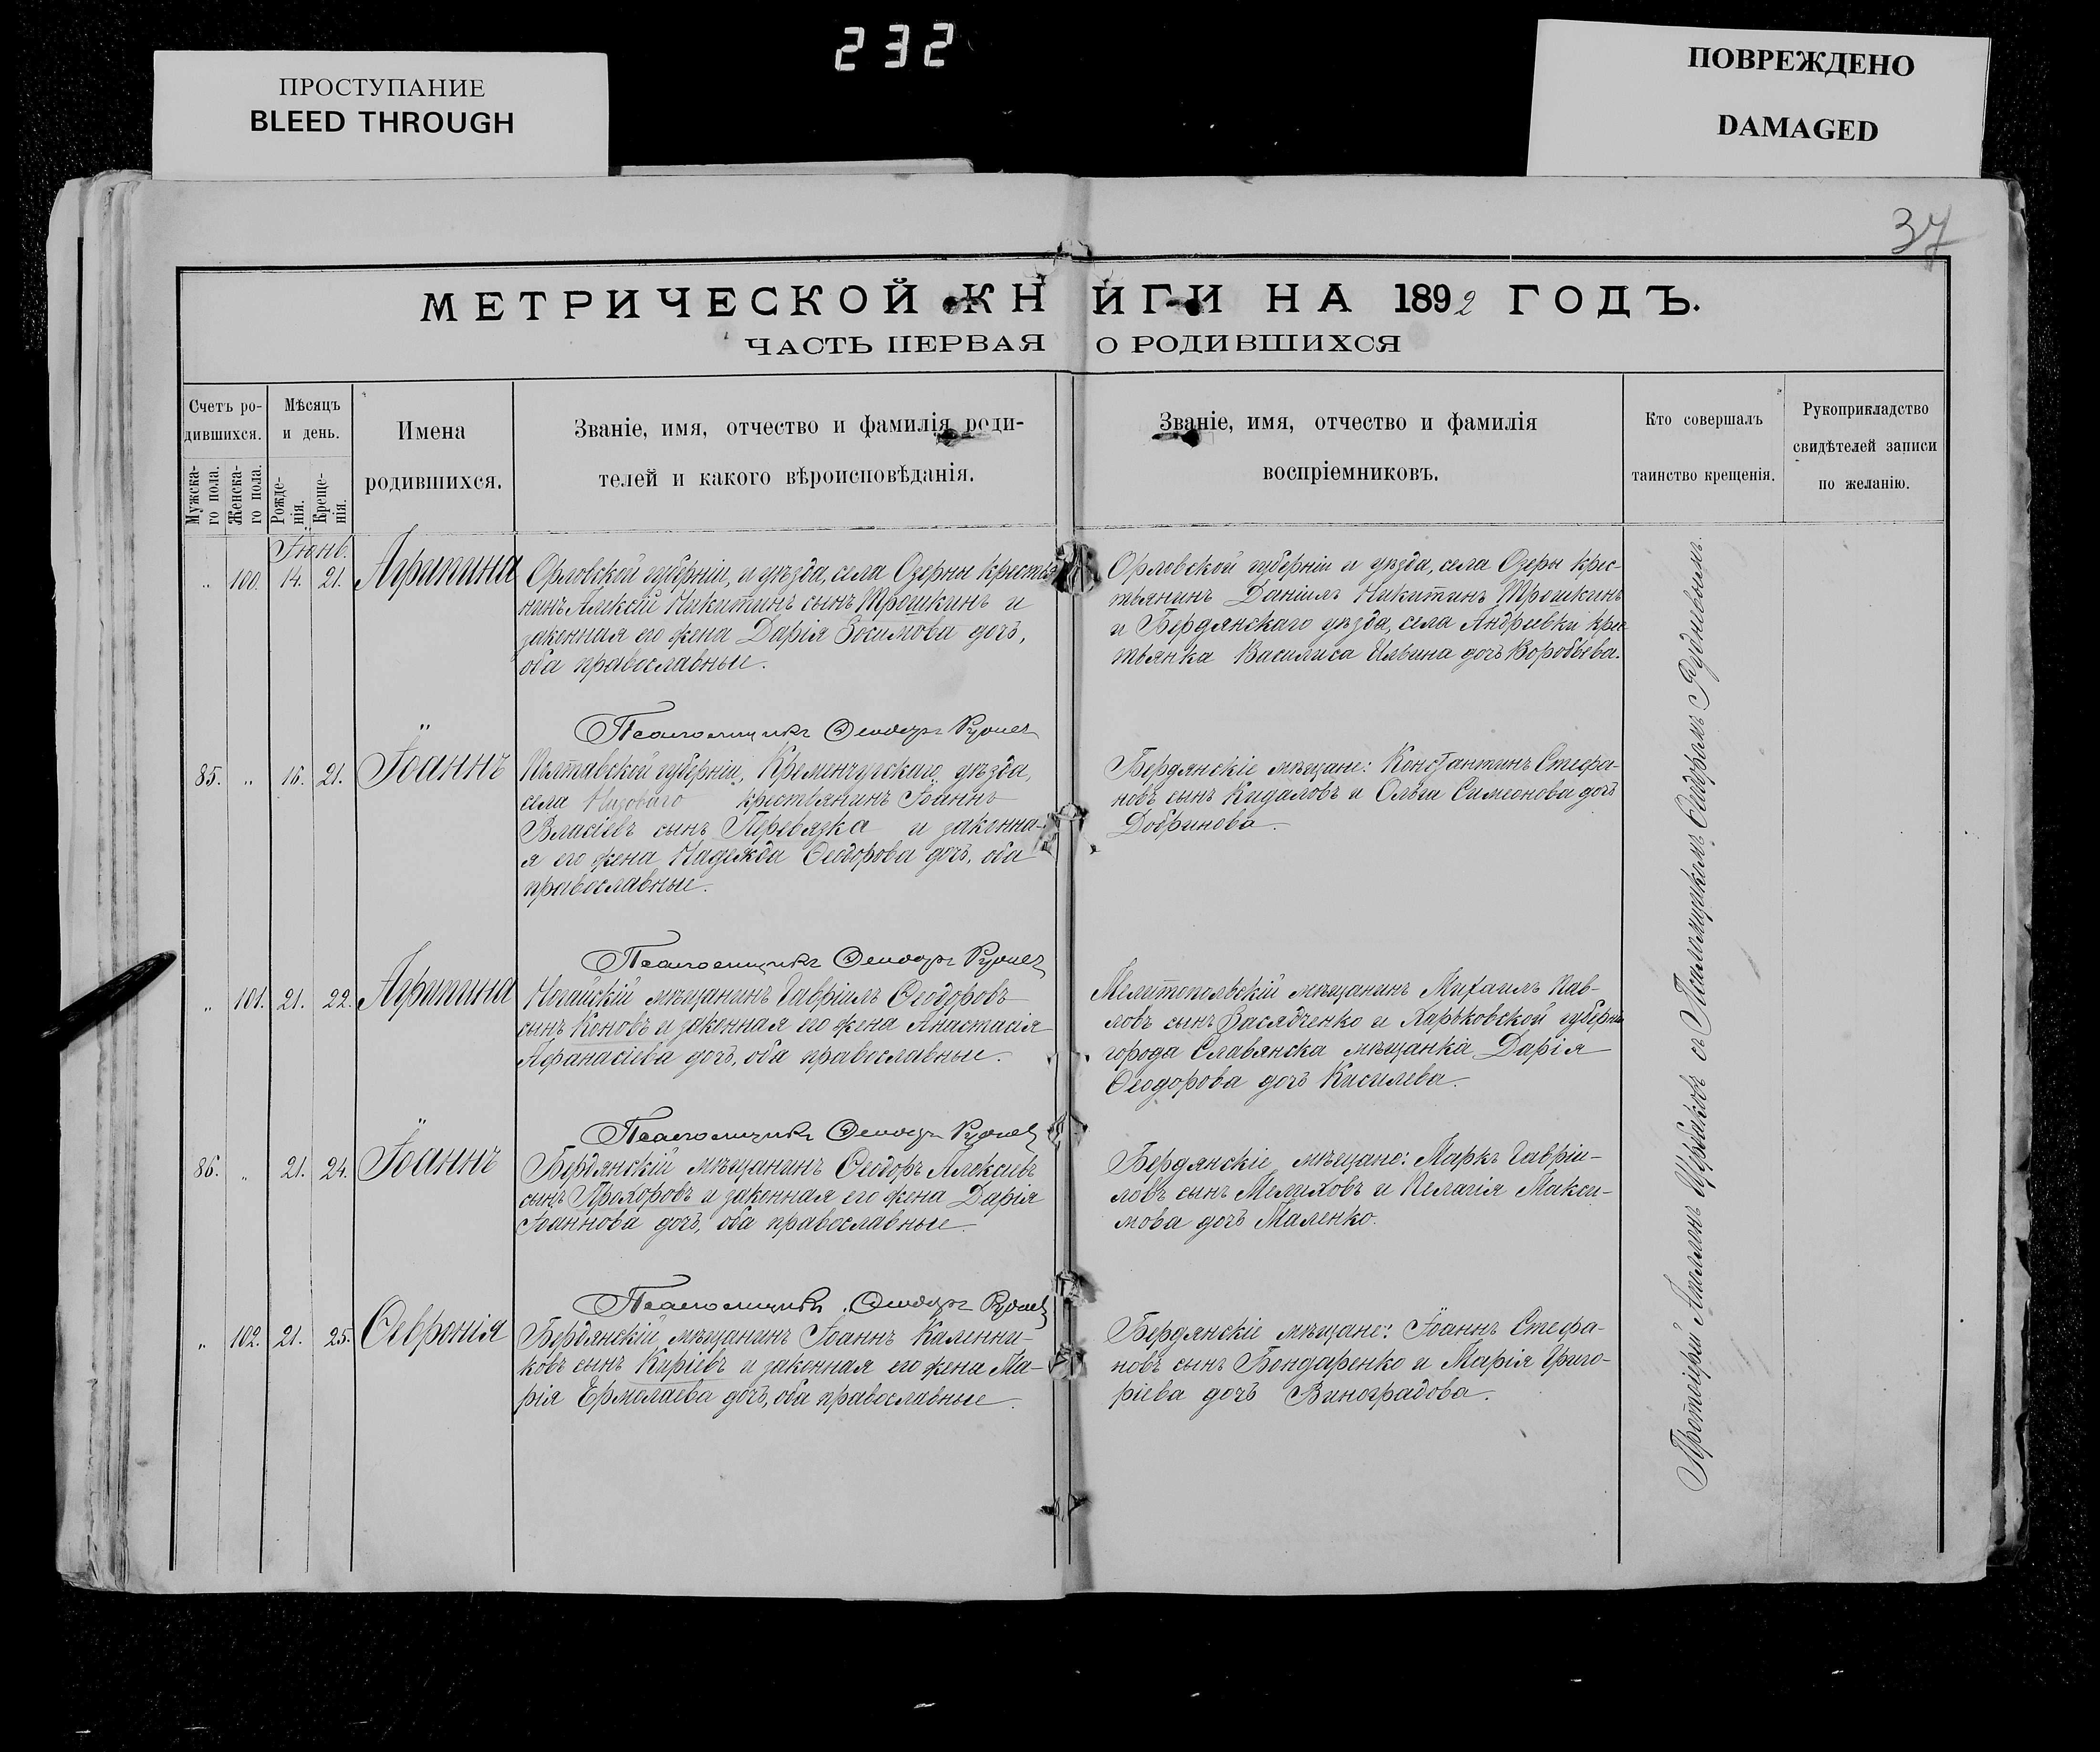 232
ПРОСТУПАНИЕ
BLEED THROUGH
ПОВРЕЖДЕНО
DAMAGED
37
МЕТРИЧЕСКОЙ КНИГИ НА 1892 ГОДЪ.
ЧАСТЬ ПЕРВАЯ О РОДИВШИХСЯ
Счетъ ро-
дившихся.
Мужска-
го пола.
Женска-
го пола.
Мѣсяцъ
и день.
Рожде-
нія.
Креще-
нія.
Имена
родившихся.
Званіе, имя, отчество и фамилія роди-
телей и какого вѣроисповѣданія.
Званіе, имя, отчество и фамилія
воспріемниковъ.
Кто совершалъ
таинство крещенія.
Рукоприкладство
свидѣтелей записи
по желанію.
Іюнь.
„ 100. 14. 21. Агрипина
Орловской губерніи, и уѣзда, села Озерны крестья
нинъ Алексій Никитинъ сынъ Трошкинъ и
законная его жена Дарія Зосимова дочь,
оба православные.
Орловской губерніи и уѣзда, села Озеры крес-
тьянинъ Даніилъ Никитинъ Трошкинъ
и Бердянскаго уѣзда, села Андреевки крес
тьянка Василиса Ильина дочь Воробьева.
Псаломщикъ Ѳеодоръ Рудневъ
85. „ 16. 21. Іоаннъ
Полтавской губерніи, Кременчугскаго уѣзда,
села крестьянинъ Іоаннъ
Власіевъ сынъ Перевязка и законна-
я его жена Надежда Ѳеодорова дочь, оба
православные.
Бердянскіе мѣщане: Константинъ Стефа-
новъ сынъ Кидаловъ и Ольга Симеонова дочь
Добринова.
Псаломщикъ Ѳеодоръ Рудневъ
„ 101. 21. 22. Агрипина
Ногайскій мѣщанинъ Гавріилъ Ѳеодоровъ
сынъ Коновъ и законная его жена Анастасія
Аѳанасіева дочь, оба православные.
Мелитопольскій мѣщанинъ Михаилъ Пав-
ловъ сынъ Засядченко и Харьковской губерніи
города Славянска мѣщанка Дарія
Ѳеодорова дочь Киселева.
Псаломщикъ Ѳеодоръ Рудневъ
86. „ 21. 24. Іоаннъ
Бердянскій мѣщанинъ Ѳеодоръ Алексіевъ
сынъ Прохоровъ и законная его жена Дарія
Іоаннова дочь, оба православные.
Бердянскіе мѣщане: Маркъ Гавріи-
ловъ сынъ Мелиховъ и Пелагія Макси-
мова дочь Маленко.
Псаломщикъ Ѳеодоръ Рудневъ
„ 102. 21. 25. Ѳеѵронія
Бердянскій мѣщанинъ Іоаннъ Каленни-
ковъ сынъ Киріевъ и законная его жена Ма-
рія Ермолаева дочь, оба православные.
Бердянскіе мѣщане: Іоаннъ Стефа-
новъ сынъ Бондаренко и Марія Григо-
ріева дочь Виноградова.
Протоіерей Щербаковъ съ Псаломщикомъ Ѳеодоромъ Рудневымъ.